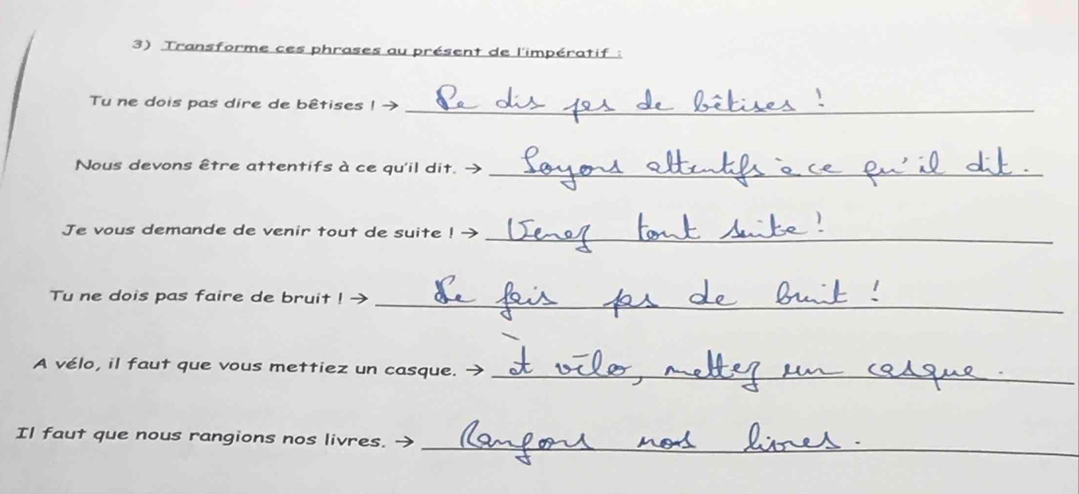 3) Transforme ces phrases au présent de l'impératif :
Tu ne dois pas dire de bêtises ! → Ne dis pas de bêtises !
Nous devons être attentifs à ce qu'il dit. → Soyons attentifs à ce qu'il dit.
Je vous demande de venir tout de suite ! → Venez tout suite !
Tu ne dois pas faire de bruit ! → Ne fais pas de bruit !
A vélo, il faut que vous mettiez un casque. → À vélo, mettez un casque.
Il faut que nous rangions nos livres. → Rangons nos livres.